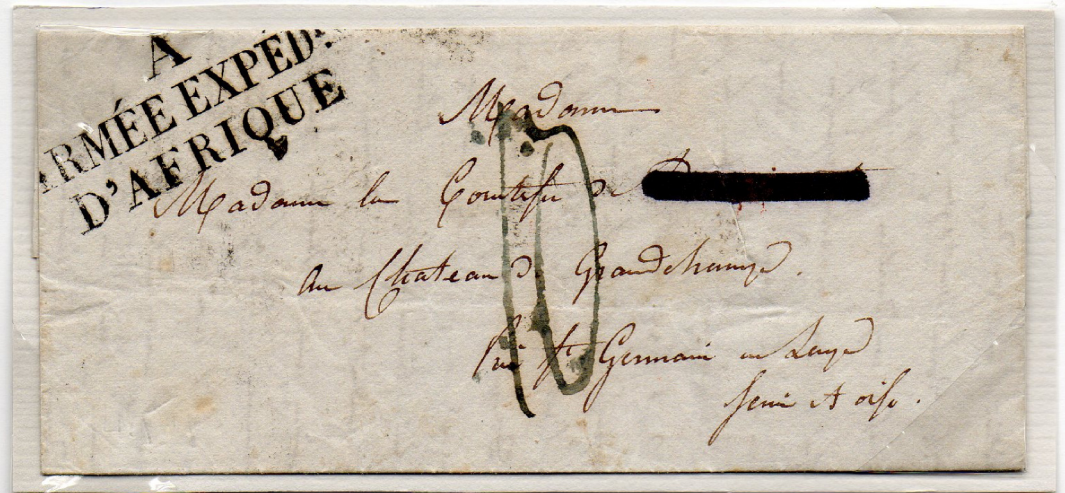 A
ARMÉE EXPÉD.
D'AFRIQUE
Madame
10
Madame la Comtesse de
Au Chateau de Grandchamp.
Près St Germain en Laye
Seine et oise.